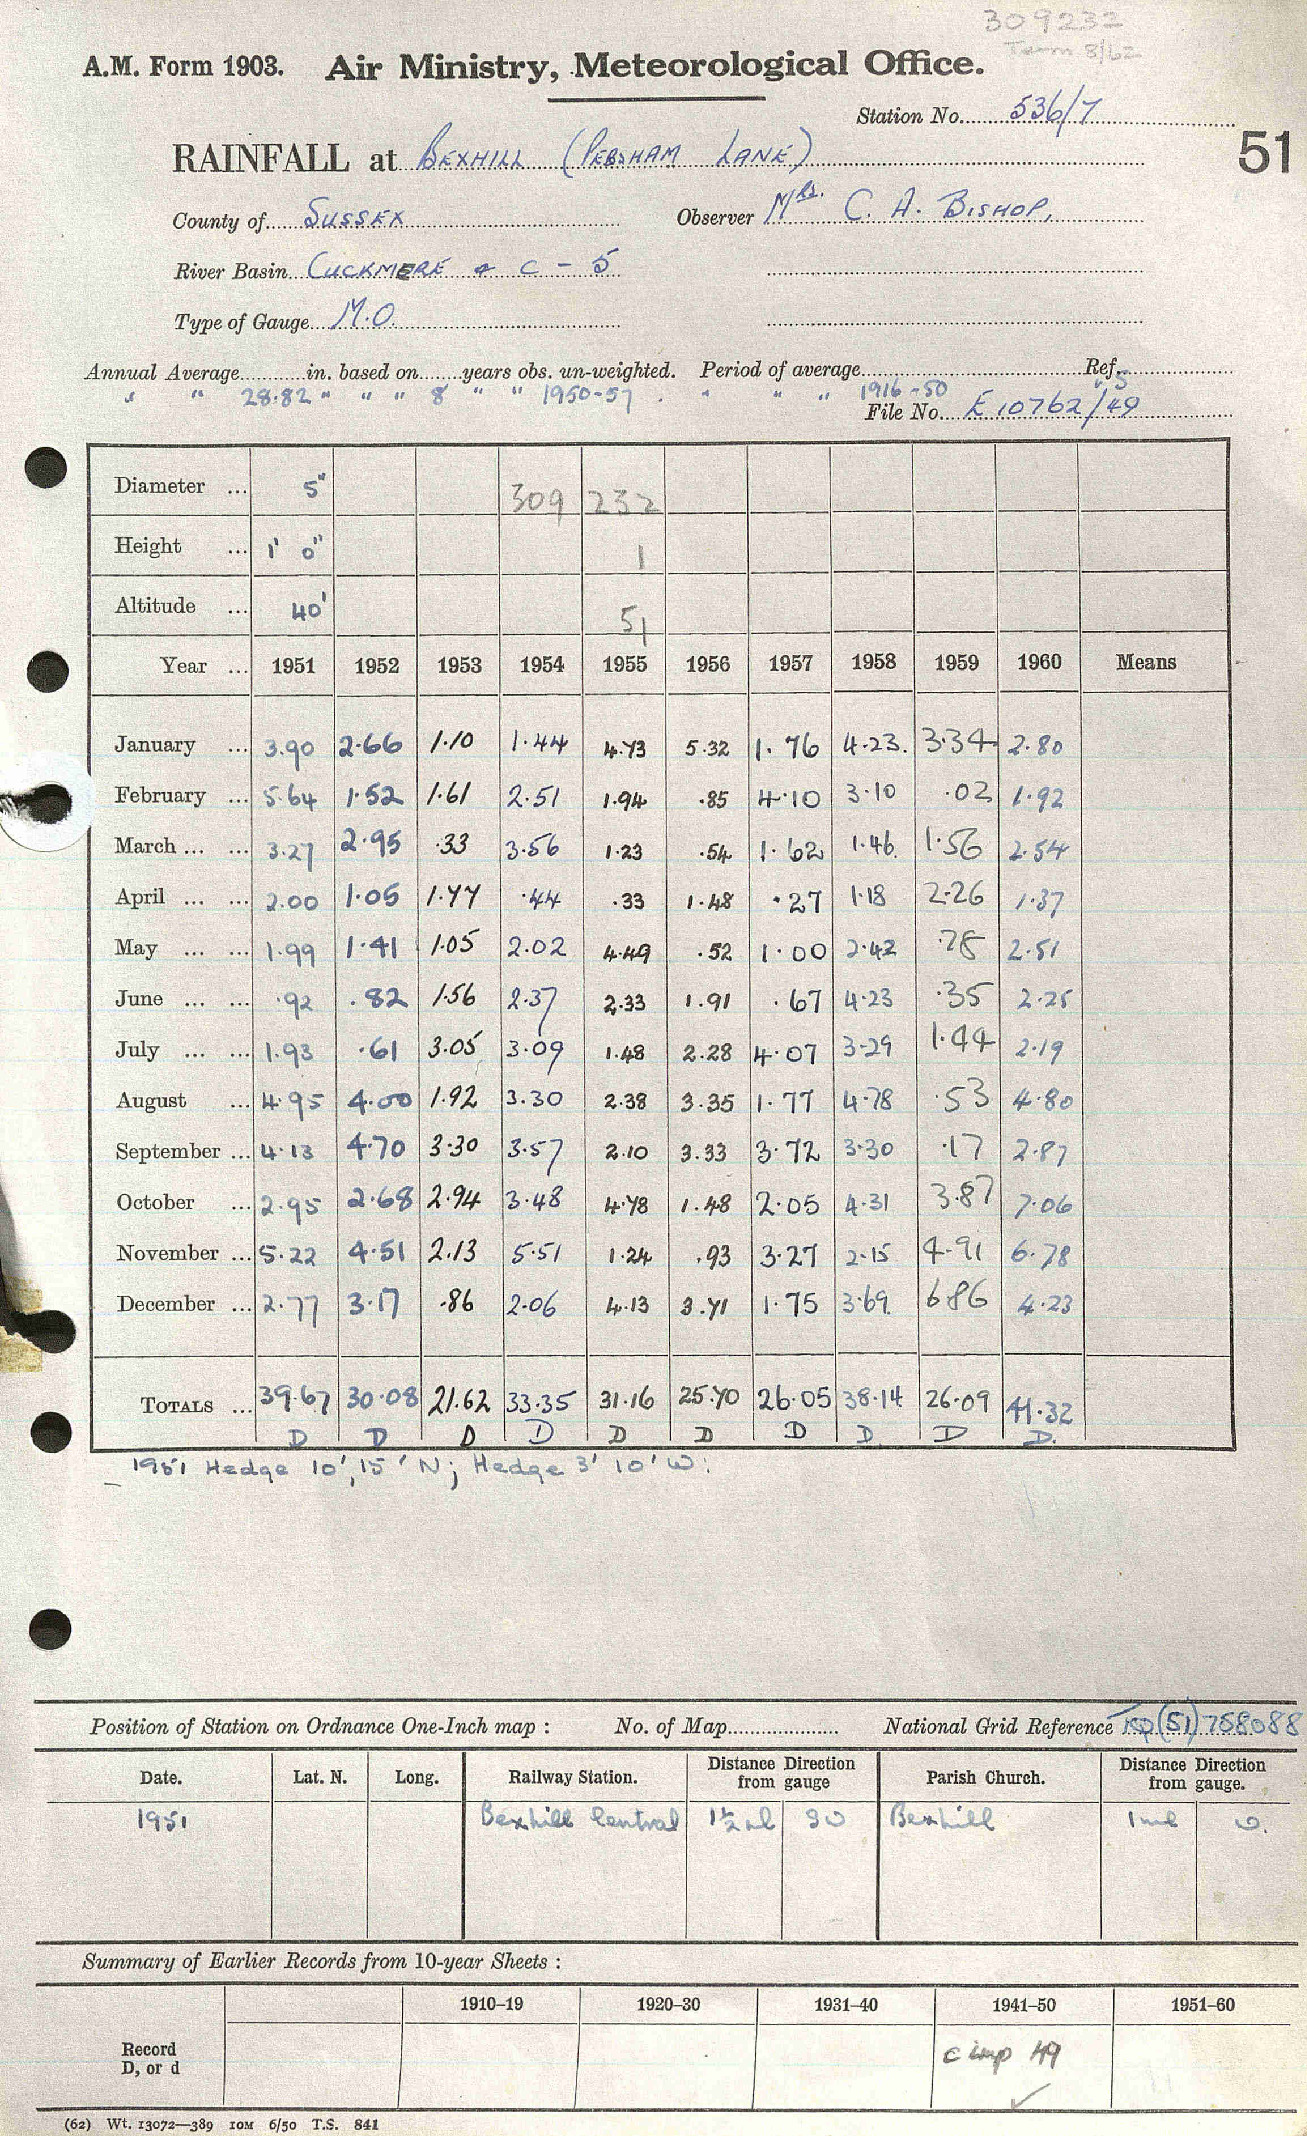 309232
Term 8/62
A.M. Form 1903. Air Ministry, Meteorological Office.
Station No. 536/7
51
RAINFALL at BEXHILL (PEBSHAM LANE)
County of SUSSEX Observer Mrs. C. A. BISHOP.
River Basin CUCKMERE & C - 5
Type of Gauge M.O.
Annual Average in. based on years obs. un-weighted. Period of average Ref.
" " 28.82 " " " 8 " " 1950-57. " " " 1916-50 " 5
File No. E 10762/49
Diameter ... 5" 309 232
Height ... 1' 0" 1
Altitude ... 40' 51
Year ... 1951 1952 1953 1954 1955 1956 1957 1958 1959 1960 Means
January ... 3.90 2.66 1.10 1.44 4.73 5.32 1.76 4.23 3.34 2.80
February ... 5.64 1.52 1.61 2.51 1.94 .85 4.10 3.10 .02 1.92
March ... ... 3.27 2.95 .33 3.56 1.23 .54 1.62 1.46 1.56 2.54
April ... ... 2.00 1.05 1.77 .44 .33 1.48 .27 1.18 2.26 1.37
May ... ... 1.99 1.41 1.05 2.02 4.49 .52 1.00 2.42 .78 2.51
June ... ... .92 .82 1.56 2.37 2.33 1.91 .67 4.23 .35 2.25
July ... ... 1.93 .61 3.05 3.09 1.48 2.28 4.07 3.29 1.44 2.19
August ... 4.95 4.00 1.92 3.30 2.38 3.35 1.77 4.78 .53 4.80
September ... 4.13 4.70 3.30 3.57 2.10 3.33 3.72 3.30 .17 2.87
October ... 2.95 2.68 2.94 3.48 4.78 1.48 2.05 4.31 3.87 7.06
November ... 5.22 4.51 2.13 5.51 1.24 .93 3.27 2.15 4.91 6.78
December ... 2.77 3.17 .86 2.06 4.13 3.71 1.75 3.69 6.86 4.23
TOTALS ... 39.67 30.08 21.62 33.35 31.16 25.70 26.05 38.14 26.09 41.32
D D D D D D D D D D.
1951 Hedge 10', 15' N; Hedge 3' 10' W.
Position of Station on Ordnance One-Inch map : No. of Map National Grid Reference TQ(51)768088
Date. Lat. N. Long. Railway Station. Distance from Direction gauge Parish Church. Distance from Direction gauge.
1951 Bexhill Central 1½ ml SW Bexhill 1 ml W.
Summary of Earlier Records from 10-year Sheets :
1910–19 1920–30 1931–40 1941–50 1951–60
Record D, or d c imp 49
(62) Wt. 13072—389 10M 6/50 T.S. 841